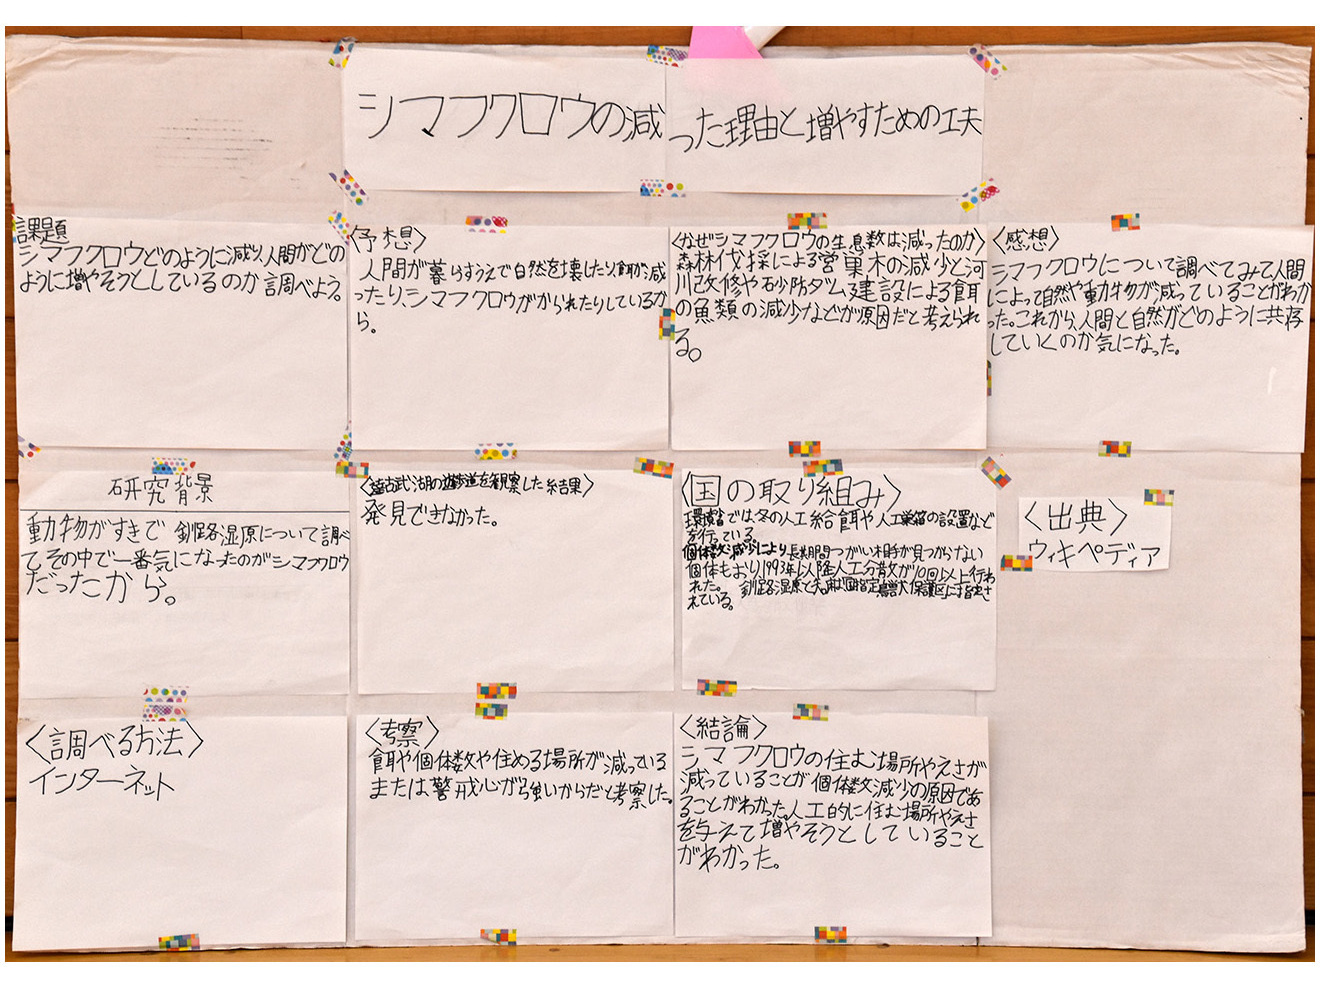 シマフクロウの減った理由と増やすための工夫
課題
シマフクロウどのように減り、人間がどの
ように増やそうとしているのか調べよう。
研究背景
動物がすきで 釧路湿原について調べ
てその中で一番気になったのがシマフクロウ
だったから。
〈調べる方法〉
インターネット
〈予想〉
人間が暮らすうえで自然を壊したり、餌が減
ったり、シマフクロウがかられたりしているか
ら。
〈塘古武湖の遊歩道を観察した結果〉
発見できなかった。
〈考察〉
餌や個体数や住める場所が減っている
または警戒心が強いからだと考察した。
〈なぜシマフクロウの生息数は減ったのか〉
森林伐採による営巣木の減少と河
川改修や砂防ダム建設による餌
の魚類の減少などが原因だと考えられ
る。
〈国の取り組み〉
環境省では、冬の人工給餌や人工巣箱の設置など
を行っている。
個体数減少により長期間つがい相手が見つからない
個体もおり1993年以降人工分散が10回以上行わ
れた。 釧路湿原と知床は国指定鳥獣保護区に指定さ
れている。
〈結論〉
シマフクロウの住む場所やえさが
減っていることが個体数減少の原因であ
ることがわかった。人工的に住む場所やえさ
を与えて増やそうとしていること
がわかった。
〈感想〉
シマフクロウについて調べてみて人間
によって自然や動物が減っていることがわか
った。これから、人間と自然がどのように共存
していくのか気になった。
〈出典〉
ウィキペディア